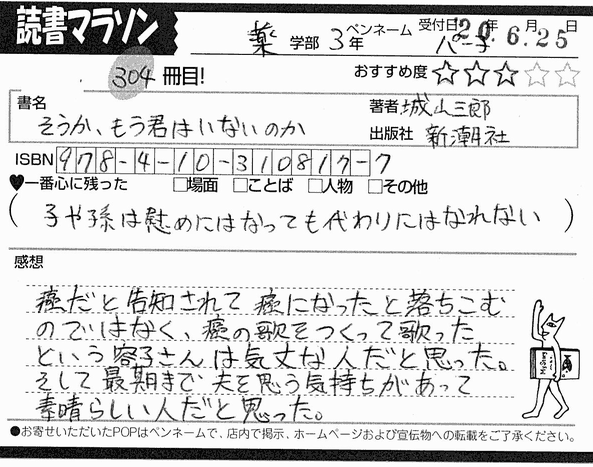 読書マラソン
薬 学部 3年 ペンネーム 八一子 受付日 '20年 6月 25日
304冊目! おすすめ度 ★★★☆☆
書名 そうか、もう君はいないのか
著者 城山三郎
出版社 新潮社
ISBN 978-4-10-310817-7
♥一番心に残った □場面 □ことば □人物 □その他
(子や孫は慰めにはなっても代わりにはなれない)
感想
癌だと告知されて癌になったと落ちこむ
のではなく、癌の歌をつくって歌った
という容子さんは気丈な人だと思った。
そして最期まで夫を思う気持ちがあって
素晴らしい人だと思った。
●お寄せいただいたPOPはペンネームで、店内で掲示、ホームページおよび宣伝物への転載をご了承ください。